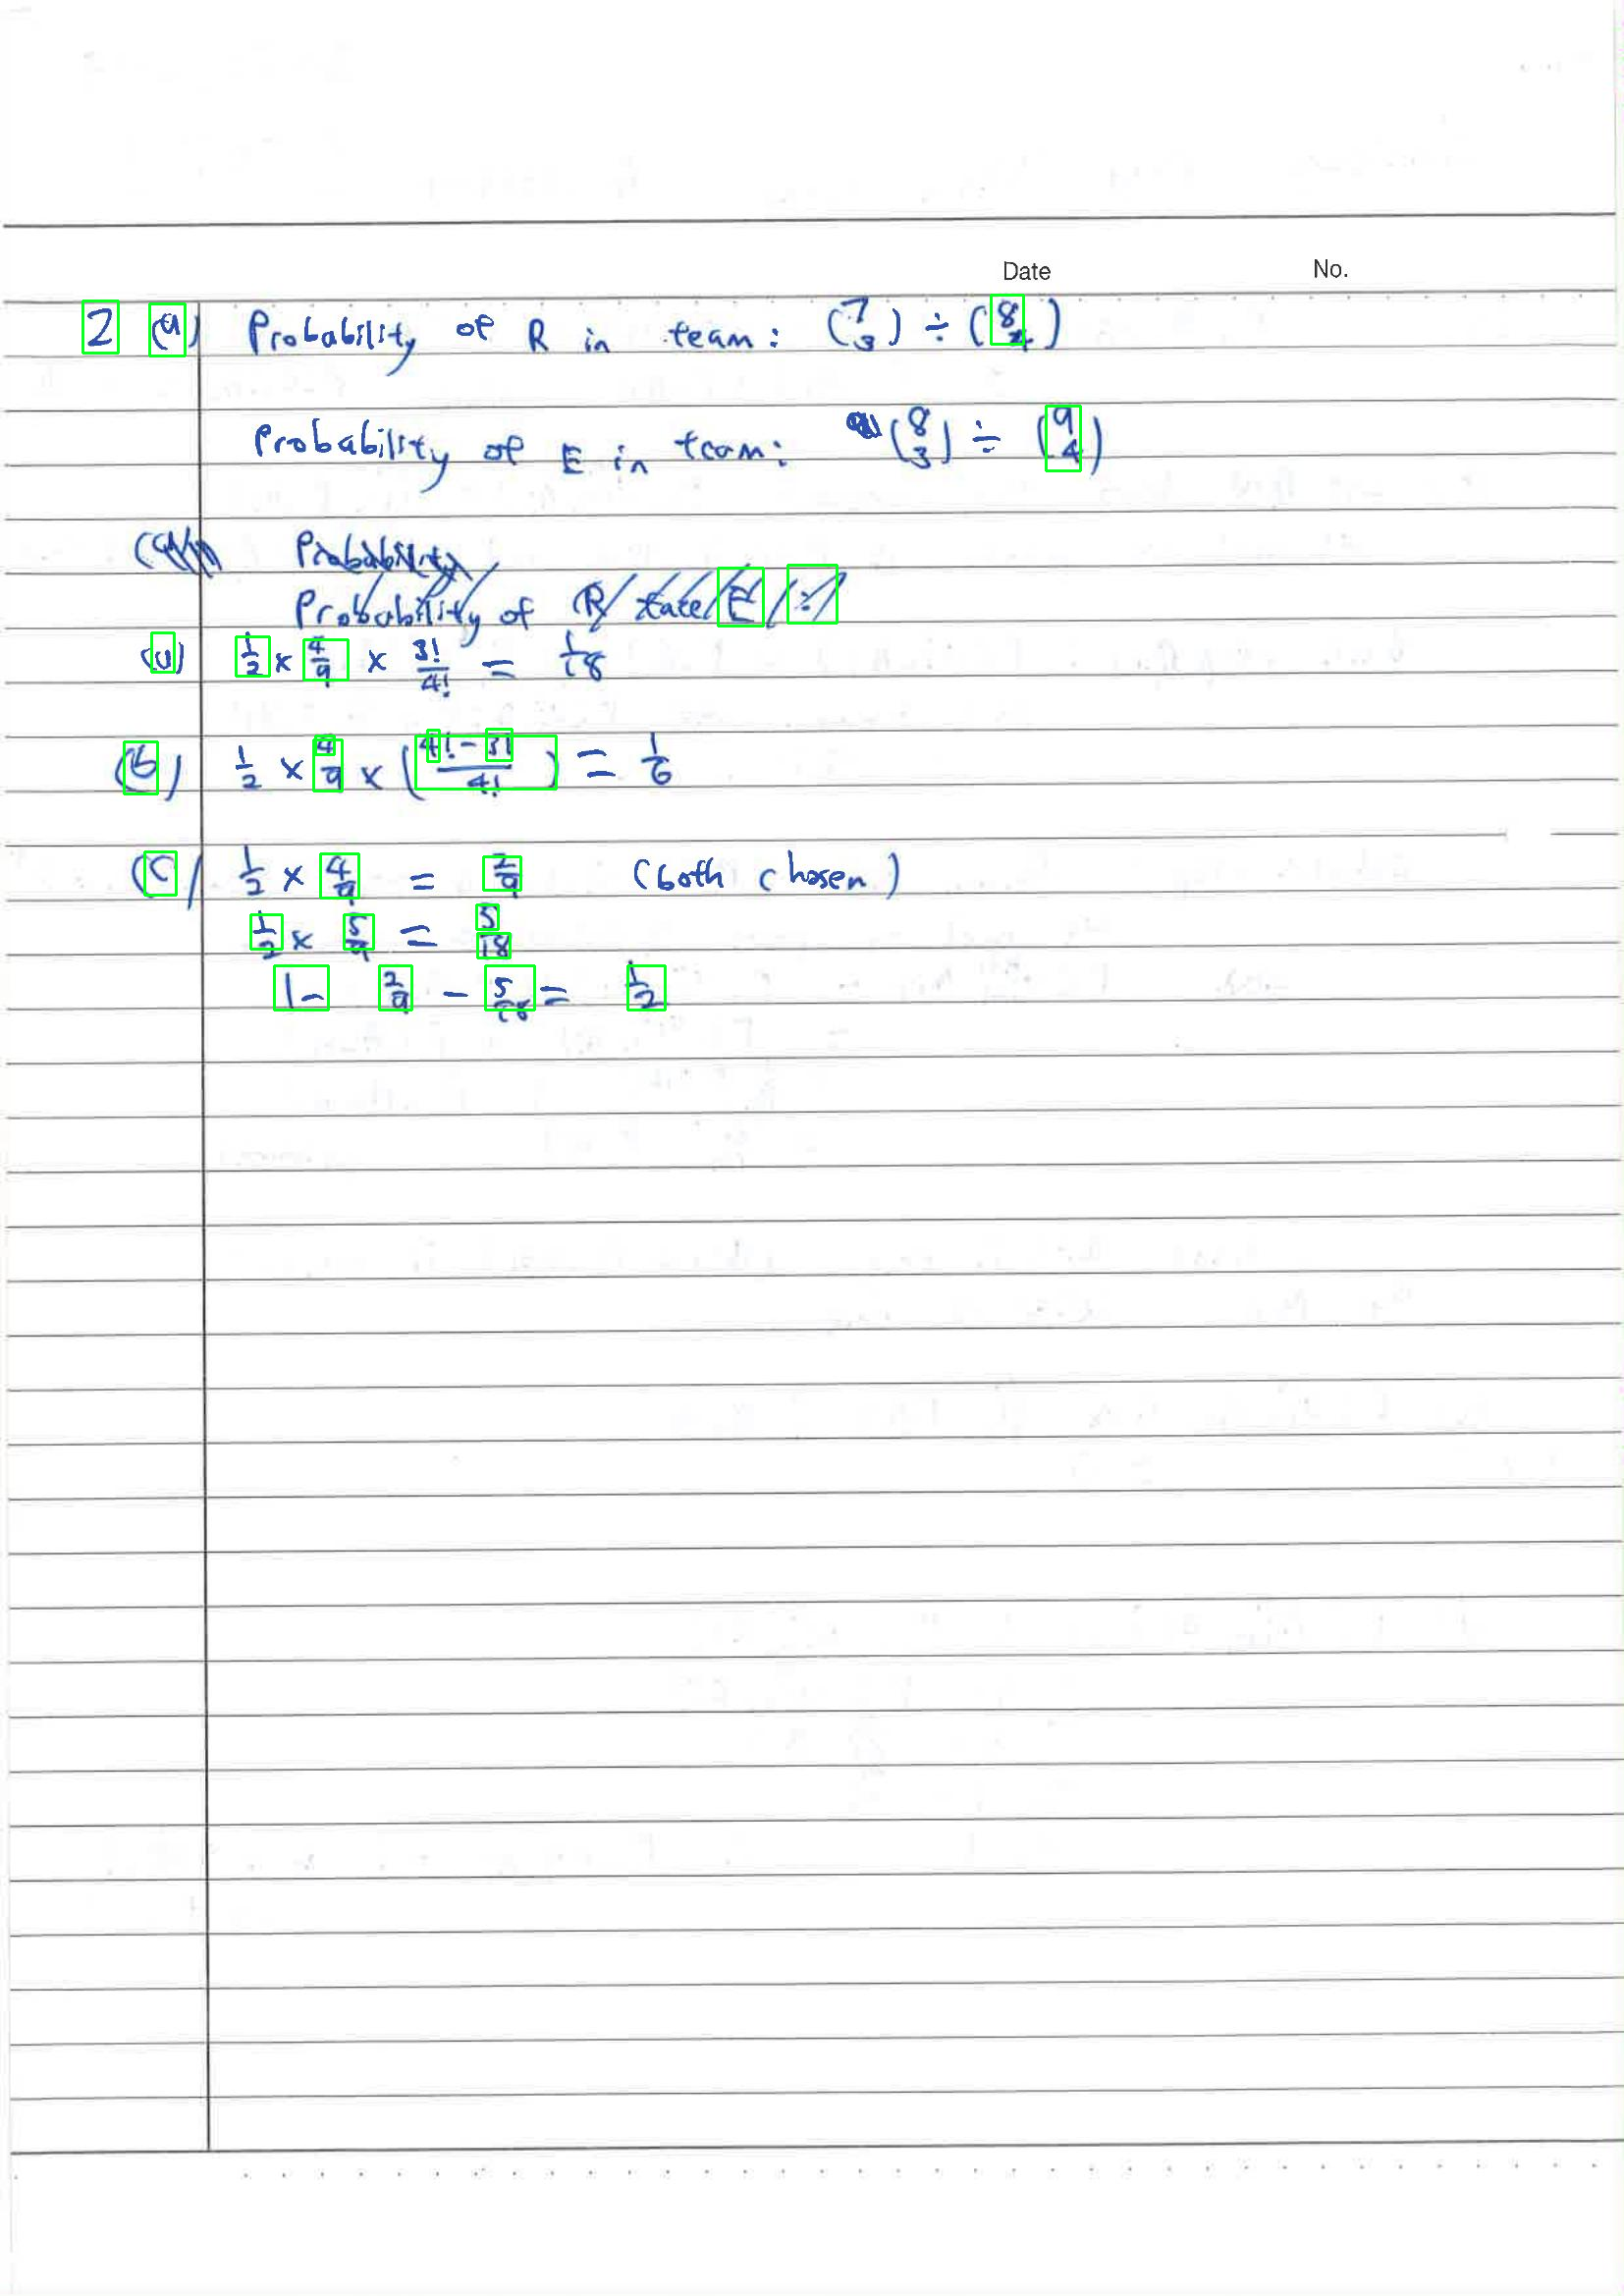 Date No.
2 (a) Probability of R in team: (7 3) ÷ (8 4)
Probability of E in team: (8 3) ÷ (9 4)
Probability
Probability of R state E :
(ii) 1/2 × 4/9 × 3!/4! = 1/18
(b) 1/2 × 4/9 × (4! - 3!/4!) = 1/6
(c) 1/2 × 4/9 = 2/9 (both chosen)
1/2 × 5/9 = 5/18
1 - 2/9 - 5/18 = 1/2